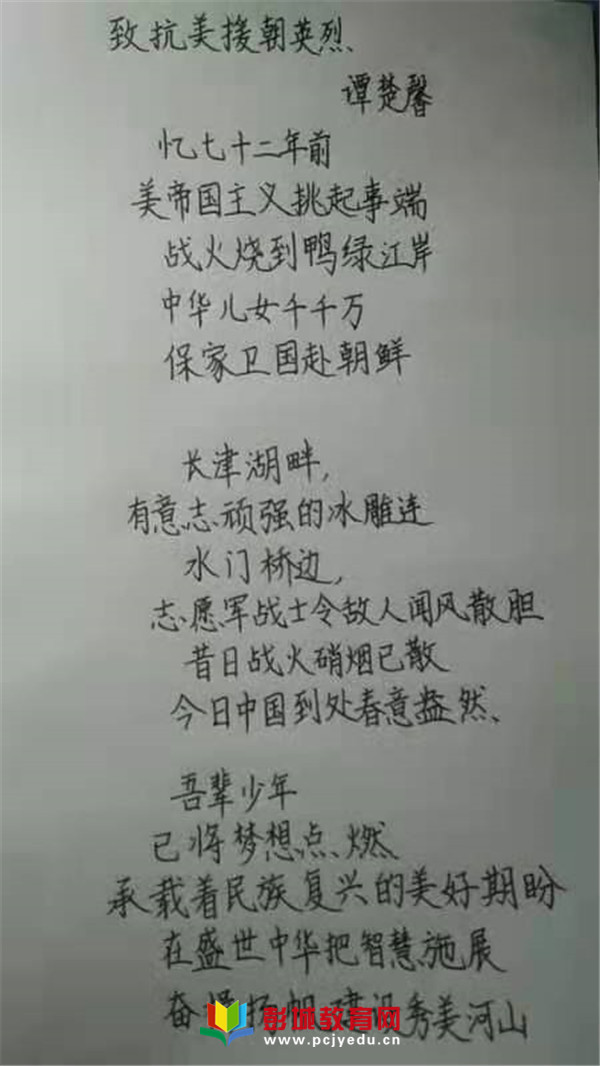 致抗美援朝英烈
谭楚馨
忆七十二年前
美帝国主义挑起事端
战火烧到鸭绿江岸
中华儿女千千万
保家卫国赴朝鲜
长津湖畔,
有意志顽强的冰雕连
水门桥边,
志愿军战士令敌人闻风散胆
昔日战火硝烟已散
今日中国到处春意盎然
吾辈少年
已将梦想点燃
承载着民族复兴的美好期盼
在盛世中华把智慧施展
奋 扬帆建设秀美河山
彭城教育网
www.pcjyedu.cn